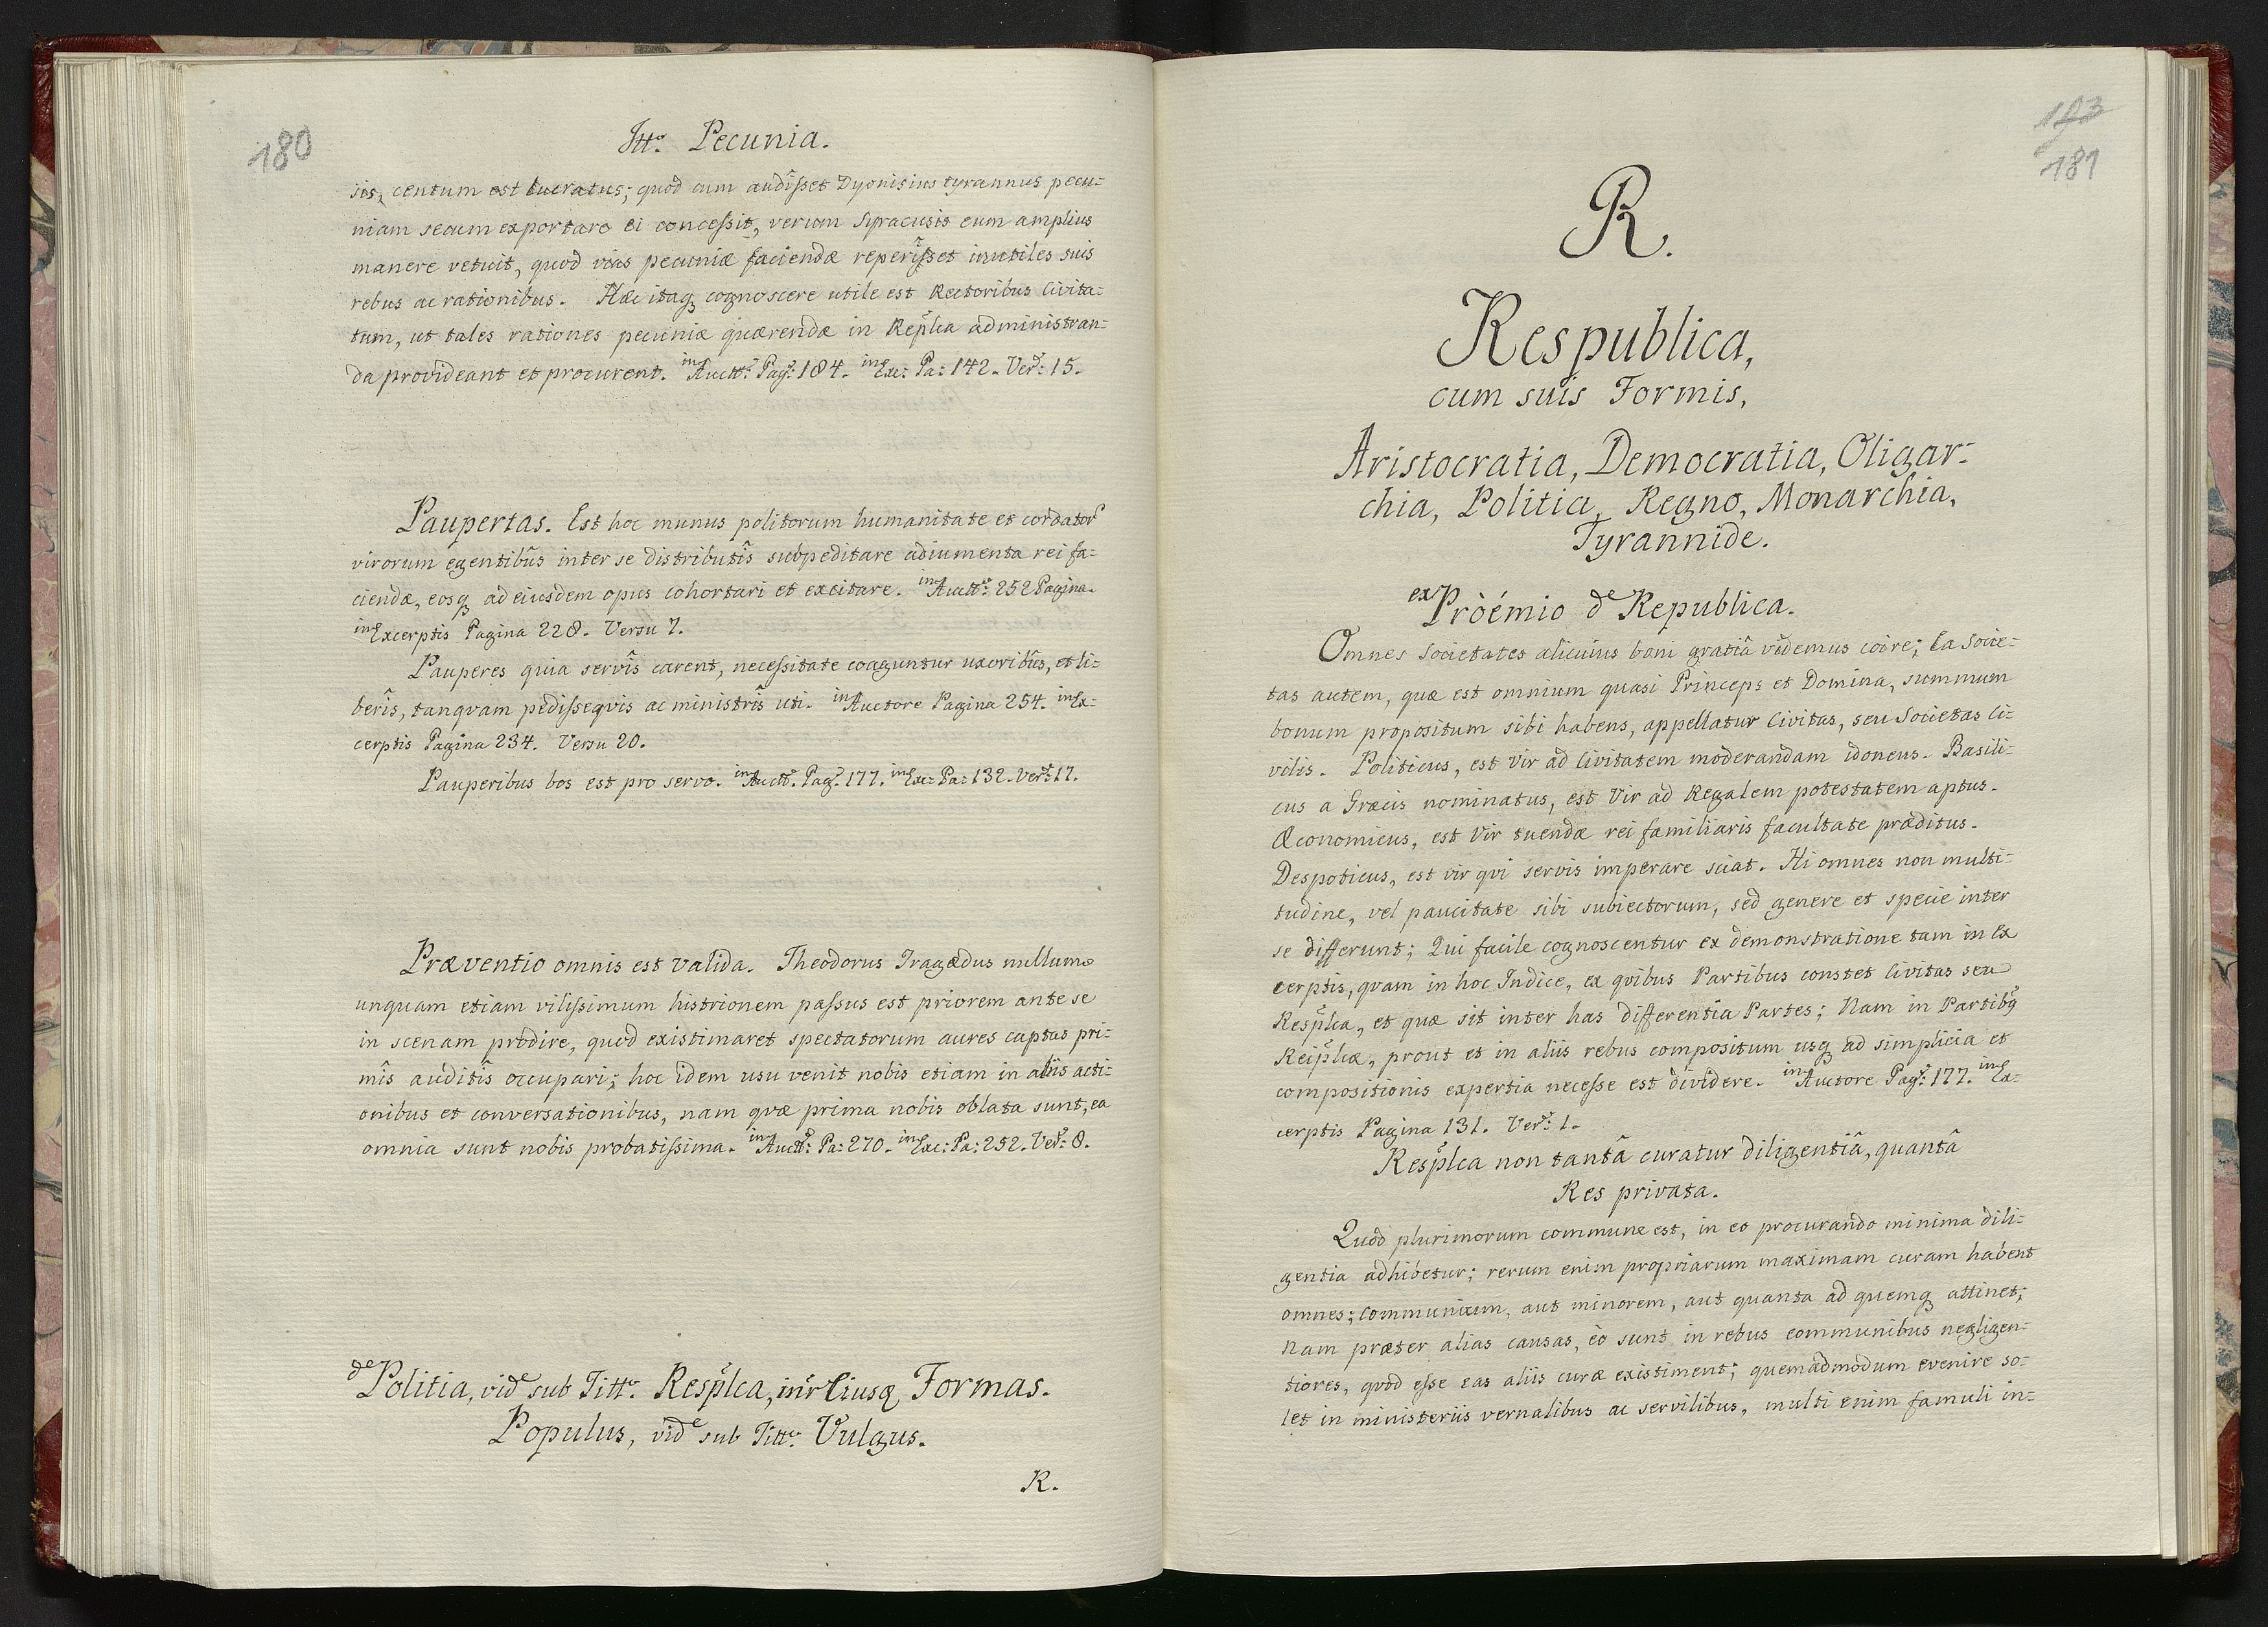 180
Ittº Pecunia.
sis, centum est lucratus; quod cum audîsset Dyonisius tyrannus pecu=
niam secum exportare ei concessit, verum Syracusis eum amplius
manere vetuit, quod vias pecuniæ faciendæ reperîsset inutiles suis
rebus ac rationibus. Hæc itaq cognoscere utile est Rectoribus Civita=
tum, ut tales rationes pecuniæ quærendæ in Replca administran=
da provideant et procurent. in Auctt: Pag: 184. in Exc: Pa: 142. Ver: 15.
Paupertas. Est hoc munus politorum humanitate et cordator
virorum egentibûs inter se distributîs subpeditare adiumenta rei fa=
ciendæ, eosq ad eiusdem opus cohortari et excitare. in Auctt: 252 Pagina.
in Excerptis Pagina 228. Versu 7.
Pauperes quia servîs carent, necessitate coaguntur uxoribûs, et li=
berîs, tanqvam pedisseqvis ac ministrîs uti. in Auctore Pagina 254. in Ex=
cerptis Pagina 234. Versu 20.
Pauperibus bos est pro servo. in Auctt. Pag. 177. in Exc: Pa: 132. Ver: 17.
Præventio omnis est valida. Theodorus Tragædus nullum
unquam etiam vilissimum histrionem passus est priorem ante se
in scenam prodire, quod existimaret spectatorum aures captas pri=
mîs auditîs occupari; hoc idem usu venit nobis etiam in aliis acti=
onibus et conversationibus, nam qvæ prima nobis oblata sunt, ea
omnia sunt nobis probatissima. in Auctt: Pa: 270. in Exc: Pa: 252. Ver: 8.
de Politia, vide sub Tittº: Resplca, Eiusq Formas.
Populus, vide sub Tittº: Vulgus.
R.
181
R.
Respublica,
cum suis Formis,
Aristocratia, Democratia, Oligar=
chia, Politia, Regno, Monarchia,
Tyrannide.
ex Pròémio de Republica.
Omnes Societates alicuius boni gratiâ videmus coire; Ea Socie=
tas autem, quæ est omnium quasi Princeps et Domina, summum
bonum propositum sibi habens, appellatur Civitas, seu Societas Ci=
vilis. Politicus, est Vir ad Civitatem moderandam idoneus. Basili=
cus a Græcis nominatus, est Vir ad Regalem potestatem aptus.
Œconomicus, est Vir tuendæ rei familiaris facultate præditus.
Despoticus, est vir qvi servis imperare sciat. Hi omnes non multi=
tudine, vel paucitate sibi subiectorum, sed genere et specie inter
se differunt; Qui facile cognoscentur ex demonstratione tam in Ex
cerptis, qvam in hoc Indice, ex qvibus Partibus constet Civitas seu
Resplca, et quæ sit inter has differentia Partes; Nam in Partibq
Reiplcæ, prout et in aliis rebus compositum usq ad simplicia et
compositionis expertia necesse est dividere. in Auctore Pag: 177. in Ex=
cerptis Pagina 131. Ver: 1.
Resplca non tantâ curatur diligentiâ, quantâ
Res privata.
Quod plurimorum commune est, in eo procurando minima dili=
gentia adhibetur; rerum enim propriarum maximam curam habent
omnes; Communium, aut minorem, aut quanta ad quemq attinet;
Nam præter alias causas, eò sunt in rebus communibus negligen=
tiores, qvod esse eas aliis curæ existiment; quemadmodum evenire so=
let in ministeriis vernalibus ac servilibus, multi enim famuli in=